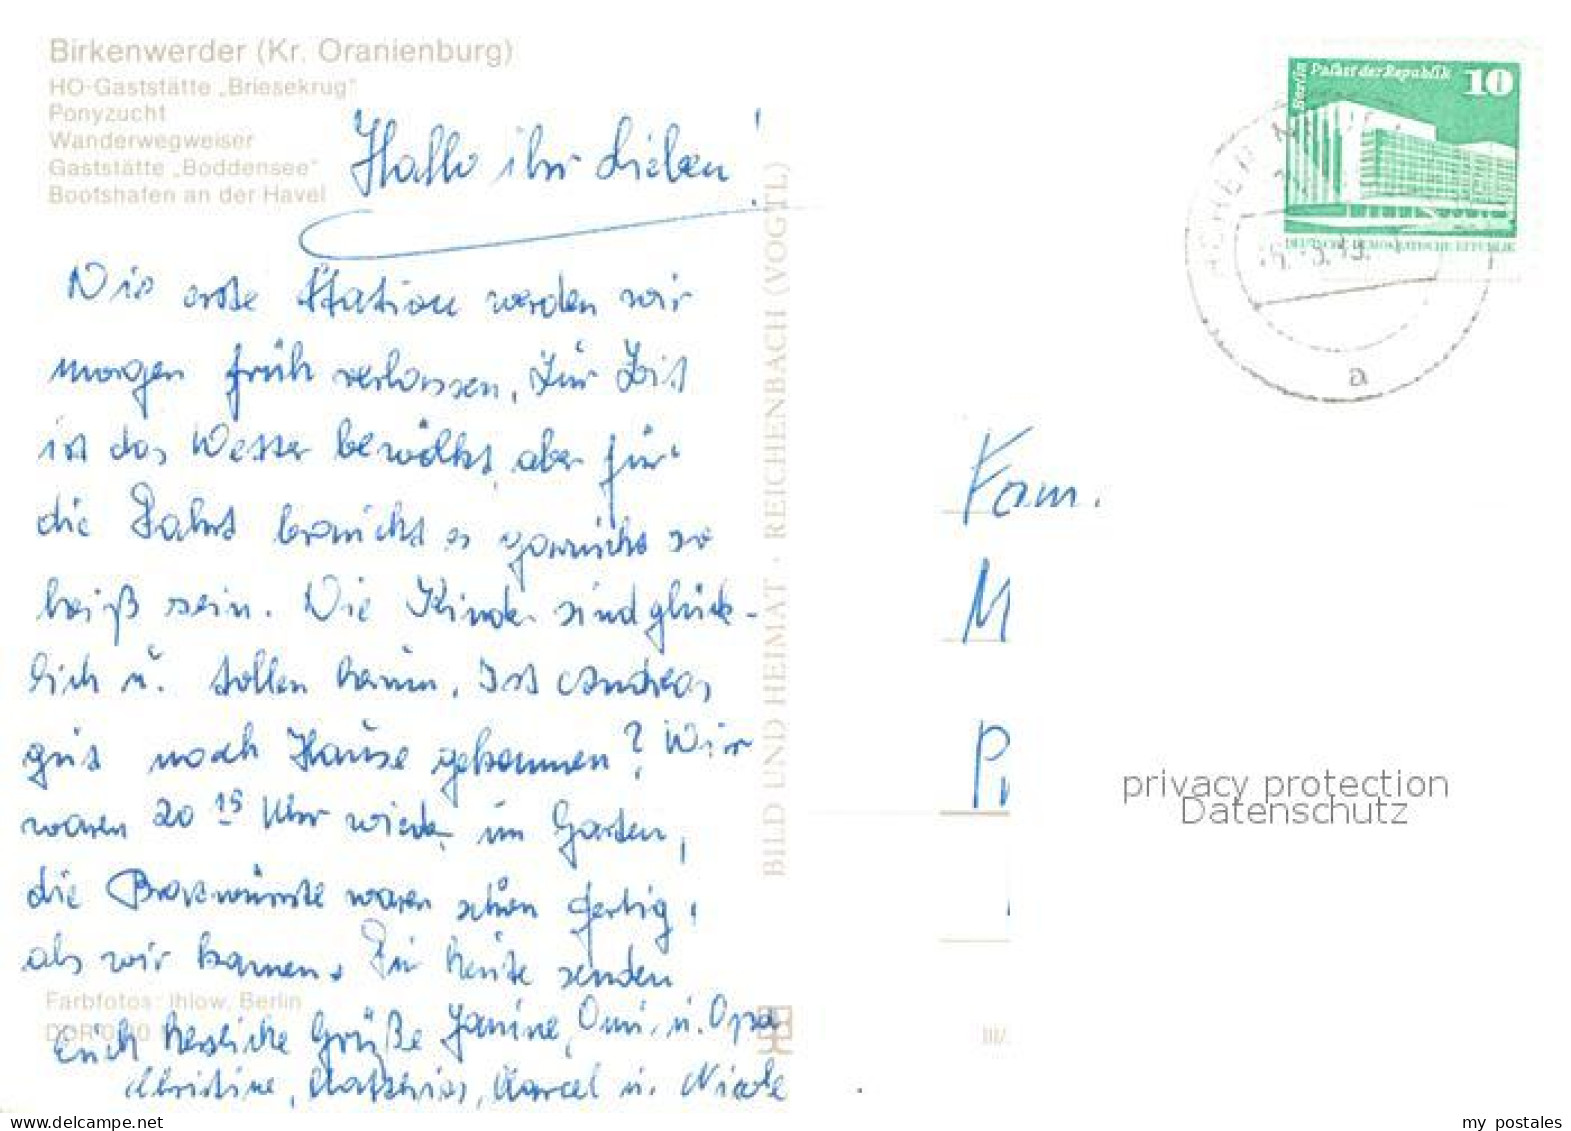 Birkenwerder (Kr. Oranienburg)
HO-Gaststätte „Briesekrug"
Ponyzucht
Wanderwegweiser
Gaststätte „Boddensee"
Bootshafen an der Havel
Hallo ihr Lieben!
Die erste Station werden wir
morgen früh verlassen, Zur Zeit
ist das Wetter bewölkt, aber für
die Fahrt braucht es gar nicht so
heiß sein. Die Kinder sind glück-
lich u. tollen herum. Ist Andreas
gut nach Hause gekommen? Wir
waren 20 15 Uhr wieder im Garten,
die Bratwürste waren schon fertig,
als wir kamen. Für heute senden
Euch herzliche Grüße Janine, Omi u. Opa
Christine, Matthias, Marcel u. Nicole
Farbfotos: Ihlow, Berlin
BILD UND HEIMAT · REICHENBACH (VOGTL)
Berlin Palast der Republik 10
a
Fam.
M
privacy protection
Datenschutz
www.delcampe.net
my_postales